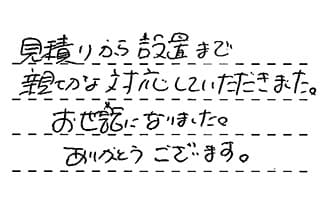 見積りから設置まで
親切な対応していただきました。
お世話になりました。
ありがとうございます。